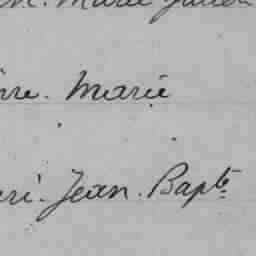 Marie
rre. Marie
ri. Jean. Bapte